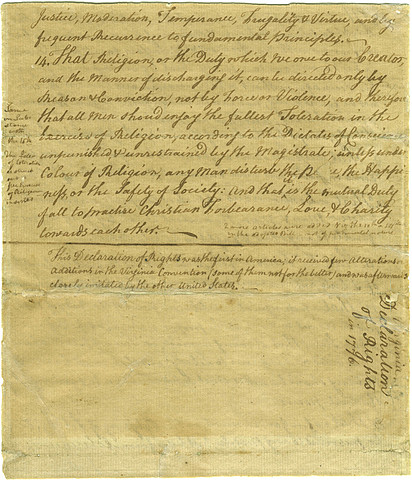 Justice, Moderation, Temperance, Frugality & Virtue, and by
frequent Recurrence to fundamental Principles.
14. That Religion, or the Duty which we owe to our Creator,
and the Manner of discharging it, can be directed only by
Reason & Conviction, not by Force or Violence; and therefore
that all Men should enjoy the fullest Toleration in the
Exercise of Religion, according to the Dictates of Conscience,
unpunished & unrestrained by the Magistrate; unless under
Colour of Religion, any Man disturb the the Happi
ness, or the Safety of Society: And that it is the mutual Duty
of all to practise Christian Forbearance, Love & Charity
towards each other.
This Declaration of Rights was the first in America; it received few Alterations or
Additions in the Virginia Convention (some of them not for the better) and was afterwards
closely imitated by the other United States.
Virginia
Declaration
of Rights
in 1776